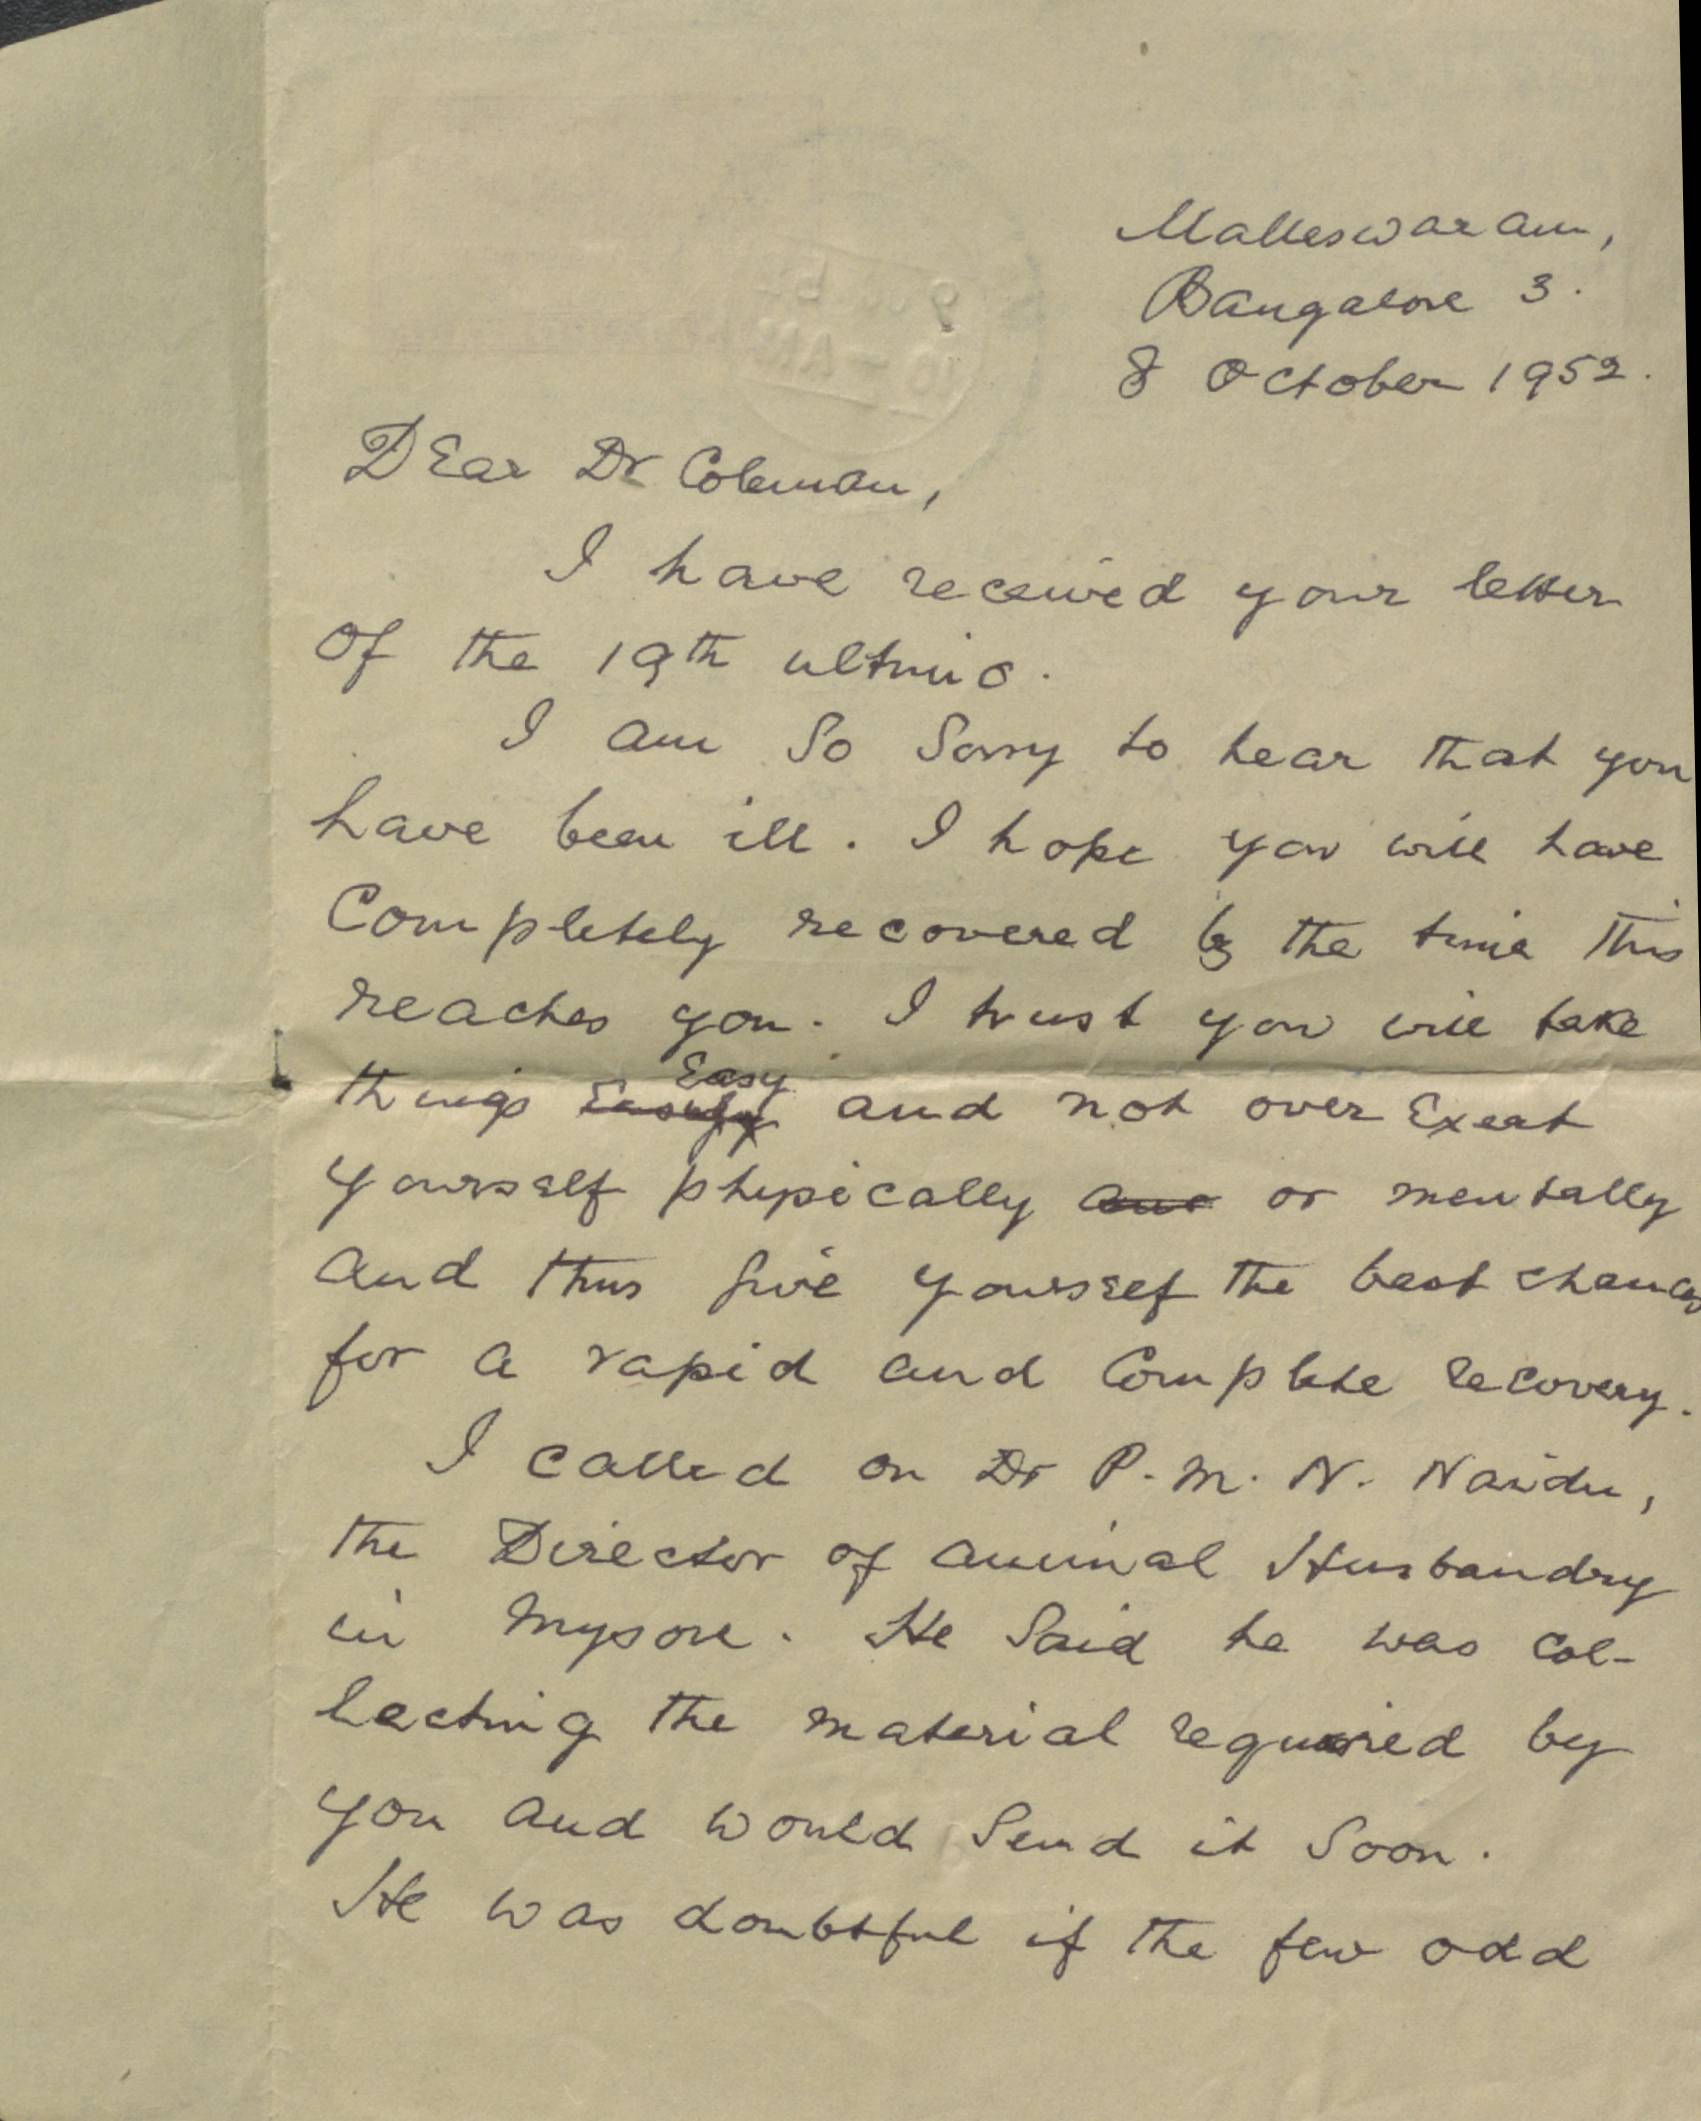 Malleswaram,
Bangalore 3.
8 October 1952.
Dear Dr Coleman,
I have received your letter
of the 19th ultimo.
I am so sorry to hear that you
have been ill. I hope you will have
completely recovered by the time this
reaches you. I trust you will take
Easy
things and not over Exert
yourself physically or mentally
and thus give yourself the best chances
for a rapid and complete recovery.
I called on Dr P. M. N. Naidu,
the Director of Animal Husbandry
in Mysore. He said he was col-
lecting the material required by
you and would send it soon.
He was doubtful if the few odd